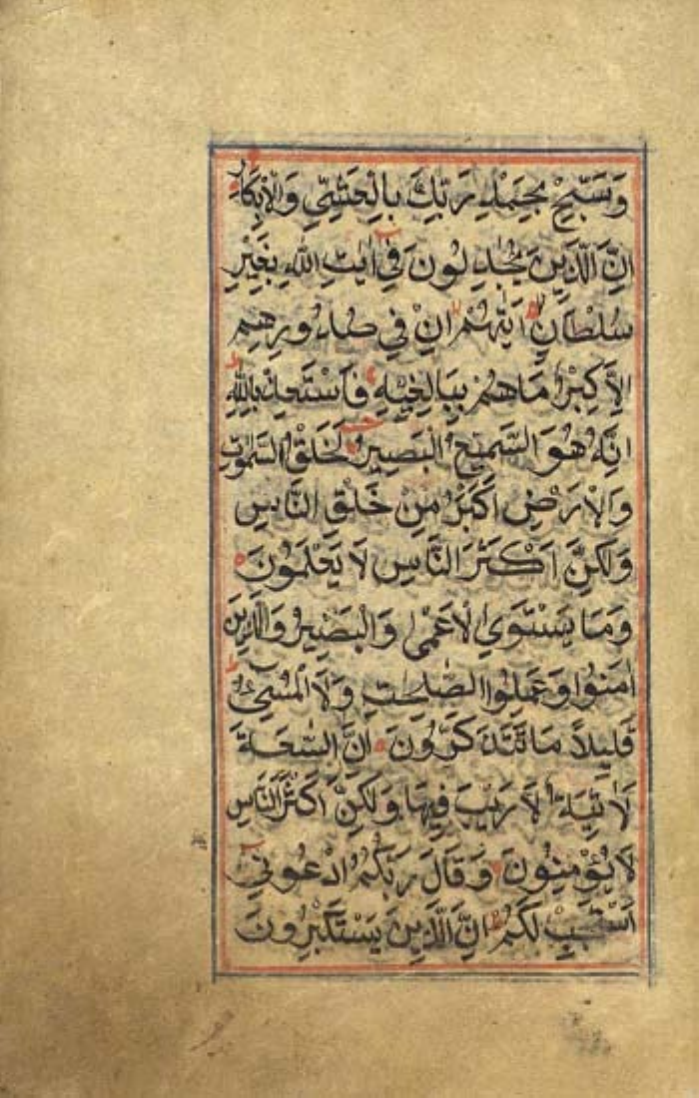 وَسَبِّحْ بِحَمْدِ رَبِّكَ بِالْعَشِيِّ وَالْاِبْكَارِ
اِنَّ الَّذِيْنَ يُجَادِلُوْنَ فِيْ اٰيٰتِ اللّٰهِ بِغَيْرِ
سُلْطَانٍ اَتٰىهُمْ اِنْ فِي صُدُوْرِهِمْ
اِلَّا كِبْرٌ مَا هُمْ بِبَالِغِيْهِ فَاسْتَعِذْ بِاللّٰهِ
اِنَّهُ هُوَ السَّمِيْعُ الْبَصِيْرُ لَخَلْقُ السَّمٰوٰتِ
وَالْاَرْضِ اَكْبَرُ مِنْ خَلْقِ النَّاسِ
وَلٰكِنَّ اَكْثَرَ النَّاسِ لَا يَعْلَمُوْنَ
وَمَا يَسْتَوِي الْاَعْمٰى وَالْبَصِيْرُ وَالَّذِيْنَ
اٰمَنُوْا وَعَمِلُوا الصّٰلِحٰتِ وَلَا الْمُسِيْءُ
قَلِيْلًا مَا تَتَذَكَّرُوْنَ اِنَّ السَّاعَةَ
لَاٰتِيَةٌ لَا رَيْبَ فِيْهَا وَلٰكِنَّ اَكْثَرَ النَّاسِ
لَا يُؤْمِنُوْنَ وَقَالَ رَبُّكُمُ ادْعُوْنِيْ
اَسْتَجِبْ لَكُمْ اِنَّ الَّذِيْنَ يَسْتَكْبِرُوْنَ